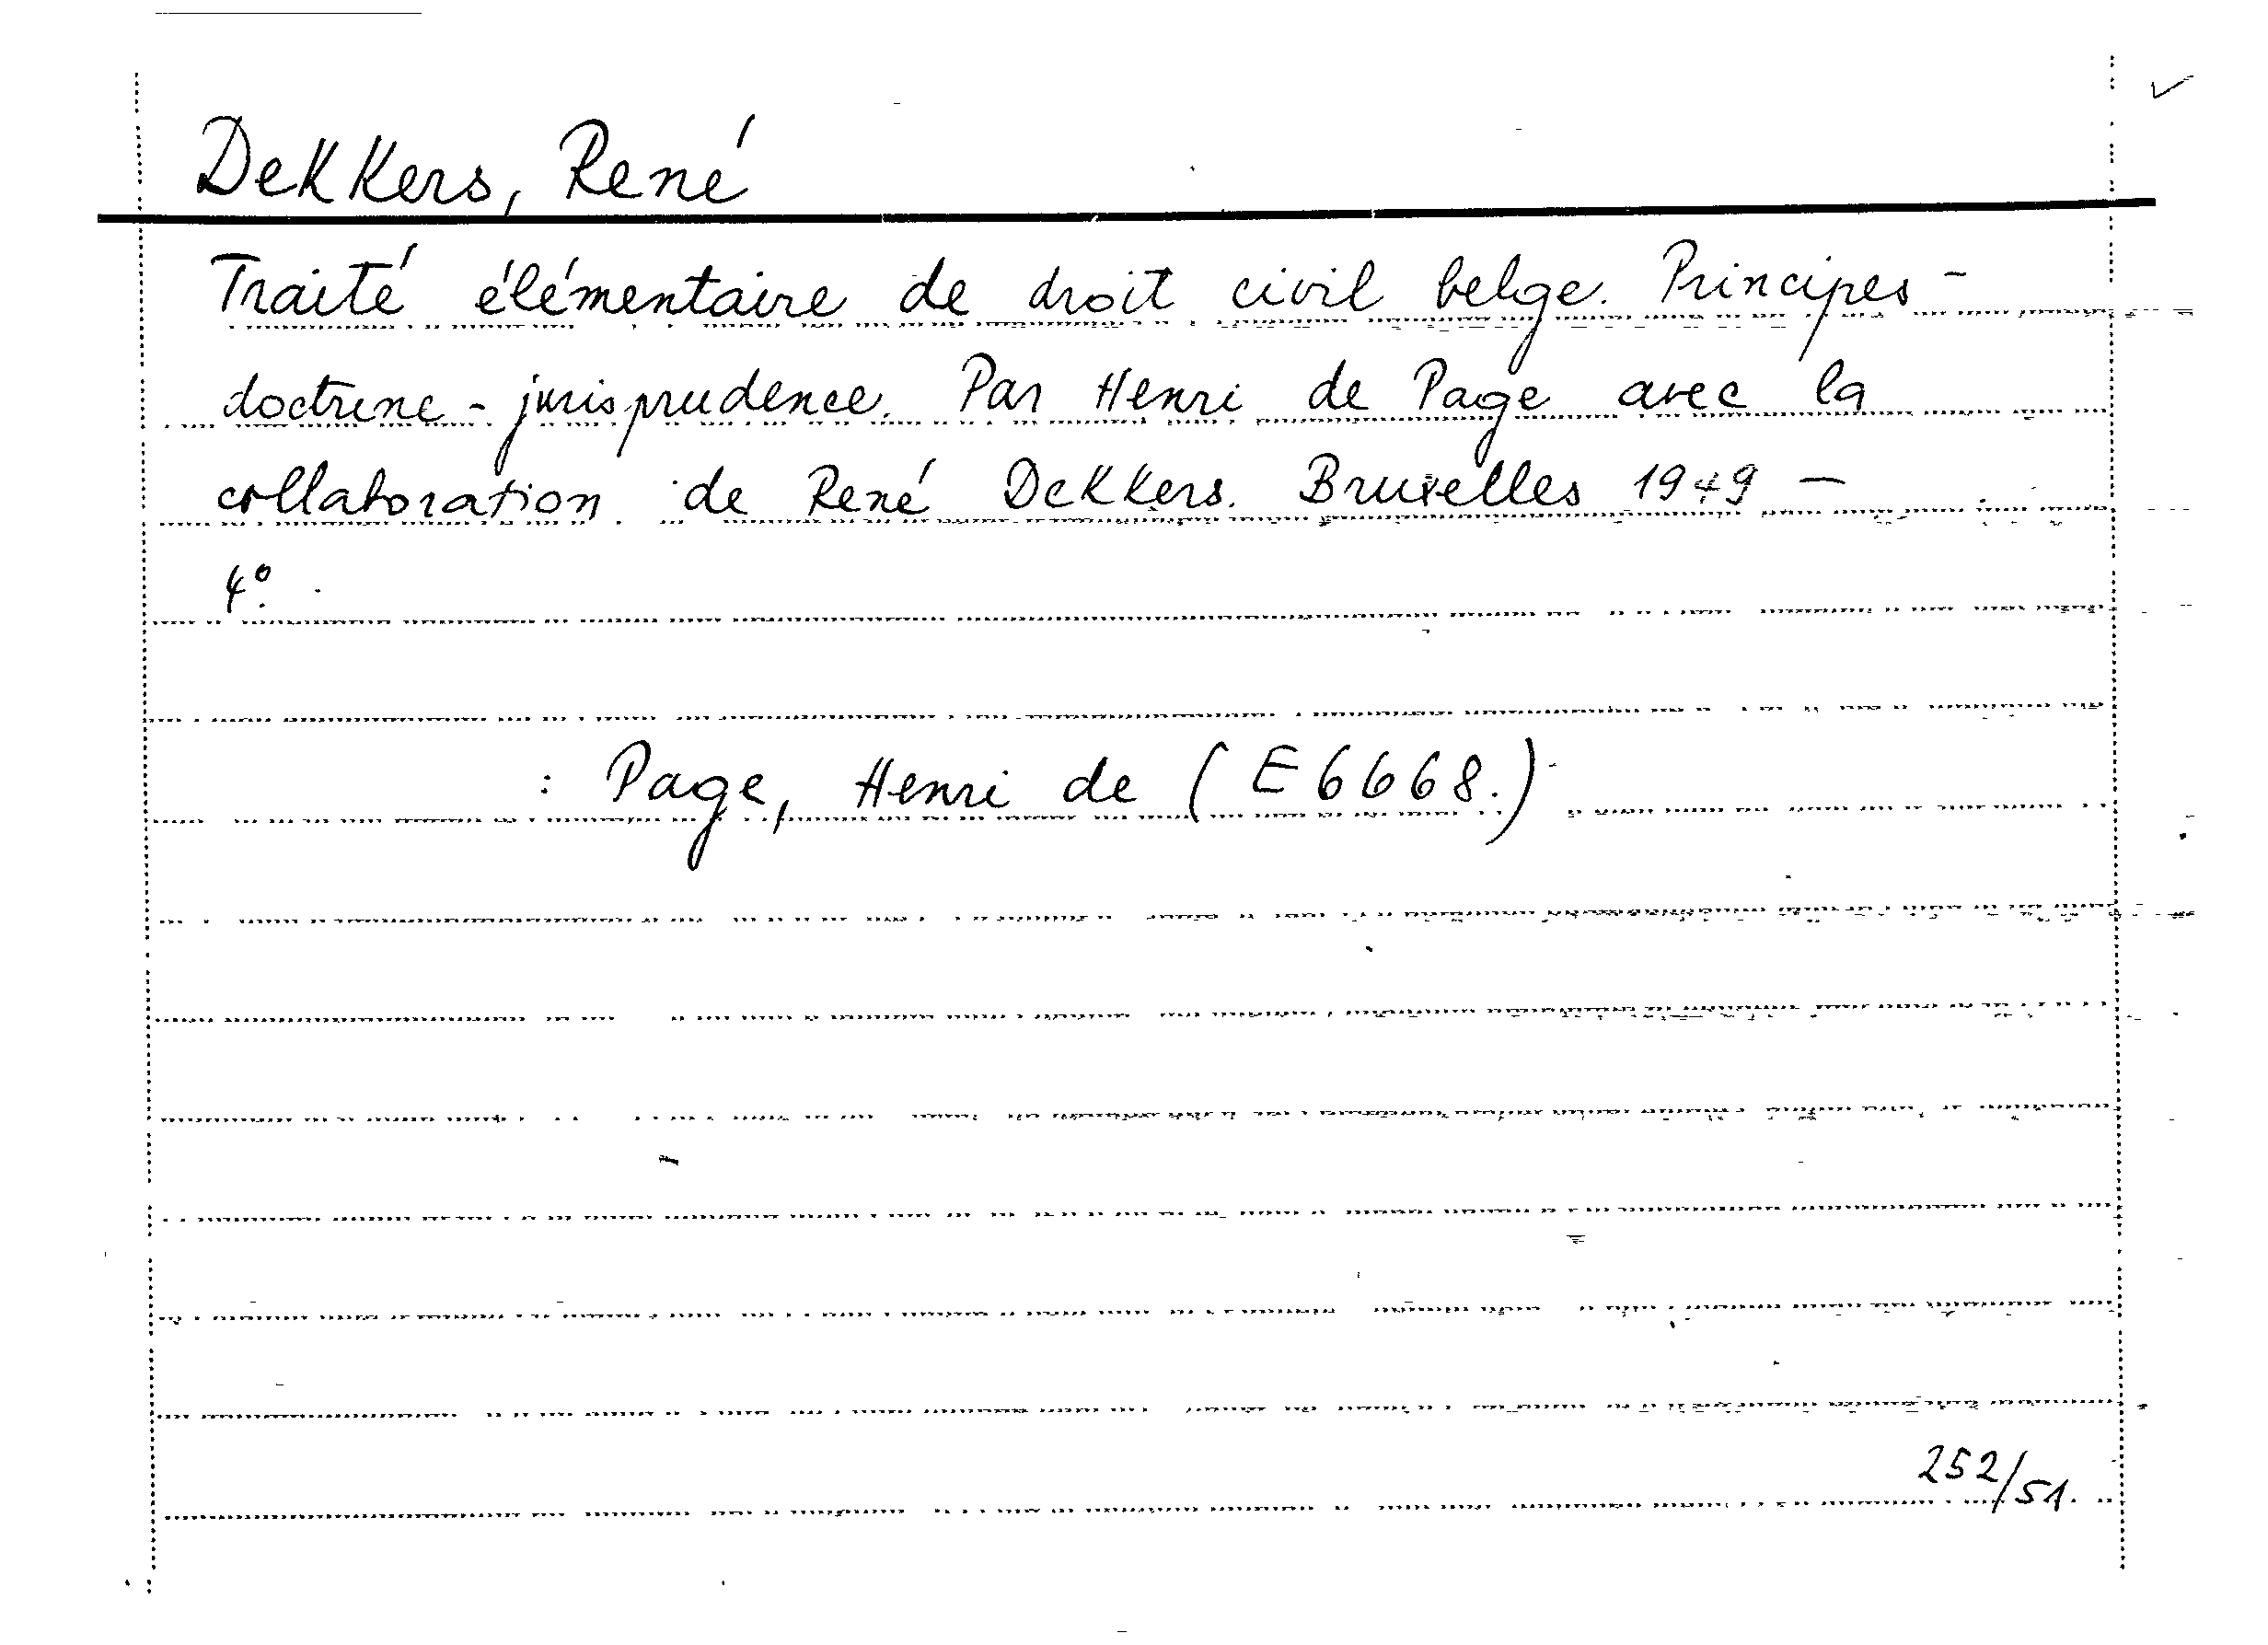 Dekkers, René
Traité élémentaire de droit civil belge. Principes -
doctrine - jurisprudence. Par Henri de Page avec la
collaboration de René Dekkers. Bruxelles 1949 —
4º.
: Page, Henri de (E 6668.)
252/51.